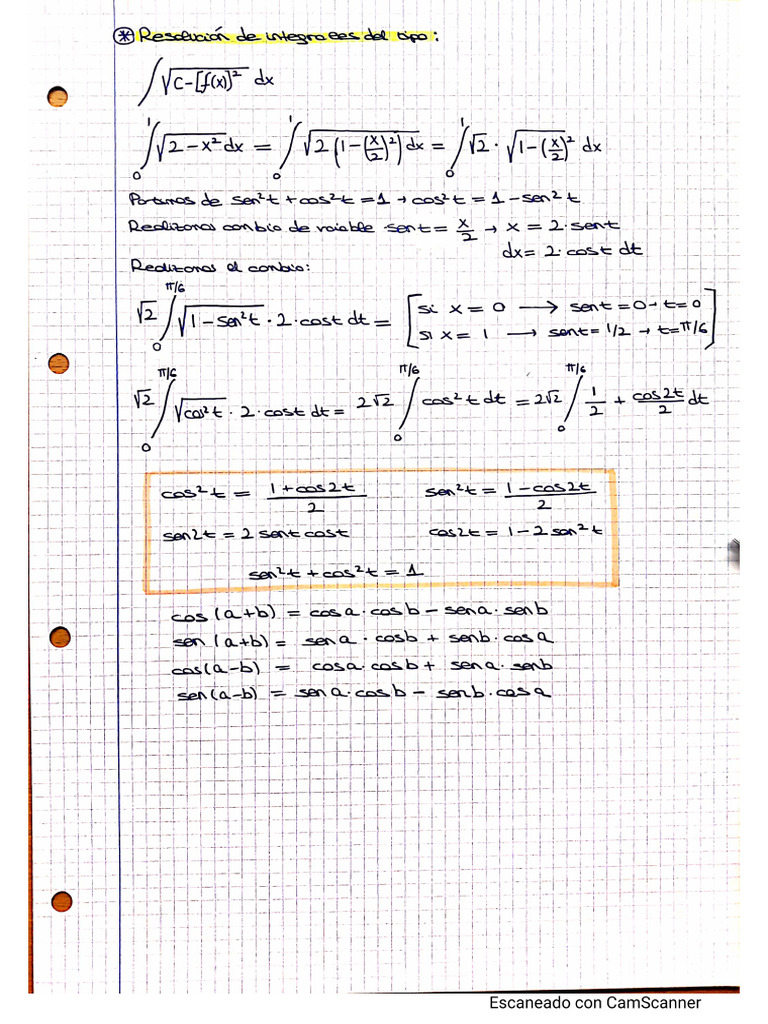 * Resolución de integrales del tipo:
∫√(c-[f(x)]²) dx
∫₀¹√(2-x²)dx = ∫₀¹√(2(1-(x/2)²))dx = ∫₀¹√2·√(1-(x/2)²) dx
Partimos de sen²t+cos²t=1→cos²t=1-sen²t
Realizamos cambio de variable sent=x/2 → x=2·sent
dx=2·cost dt
Realizamos el cambio:
√2 ∫₀^(π/6) √(1-sen²t)·2·cost dt = [si x=0 → sent=0→t=0
si x=1 → sent=1/2→t=π/6]
√2 ∫₀^(π/6) √(cos²t)·2·cost dt = 2√2 ∫₀^(π/6) cos²t dt = 2√2 ∫₀^(π/6) 1/2 + cos2t/2 dt
cos²t = (1+cos2t)/2 sen²t = (1-cos2t)/2
sen2t = 2 sent cost cos2t = 1-2 sen²t
sen²t + cos²t = 1
cos(a+b) = cosa·cosb - sena·senb
sen(a+b) = sena·cosb + senb·cosa
cos(a-b) = cosa·cosb + sena·senb
sen(a-b) = sena·cosb - senb·cosa
Escaneado con CamScanner